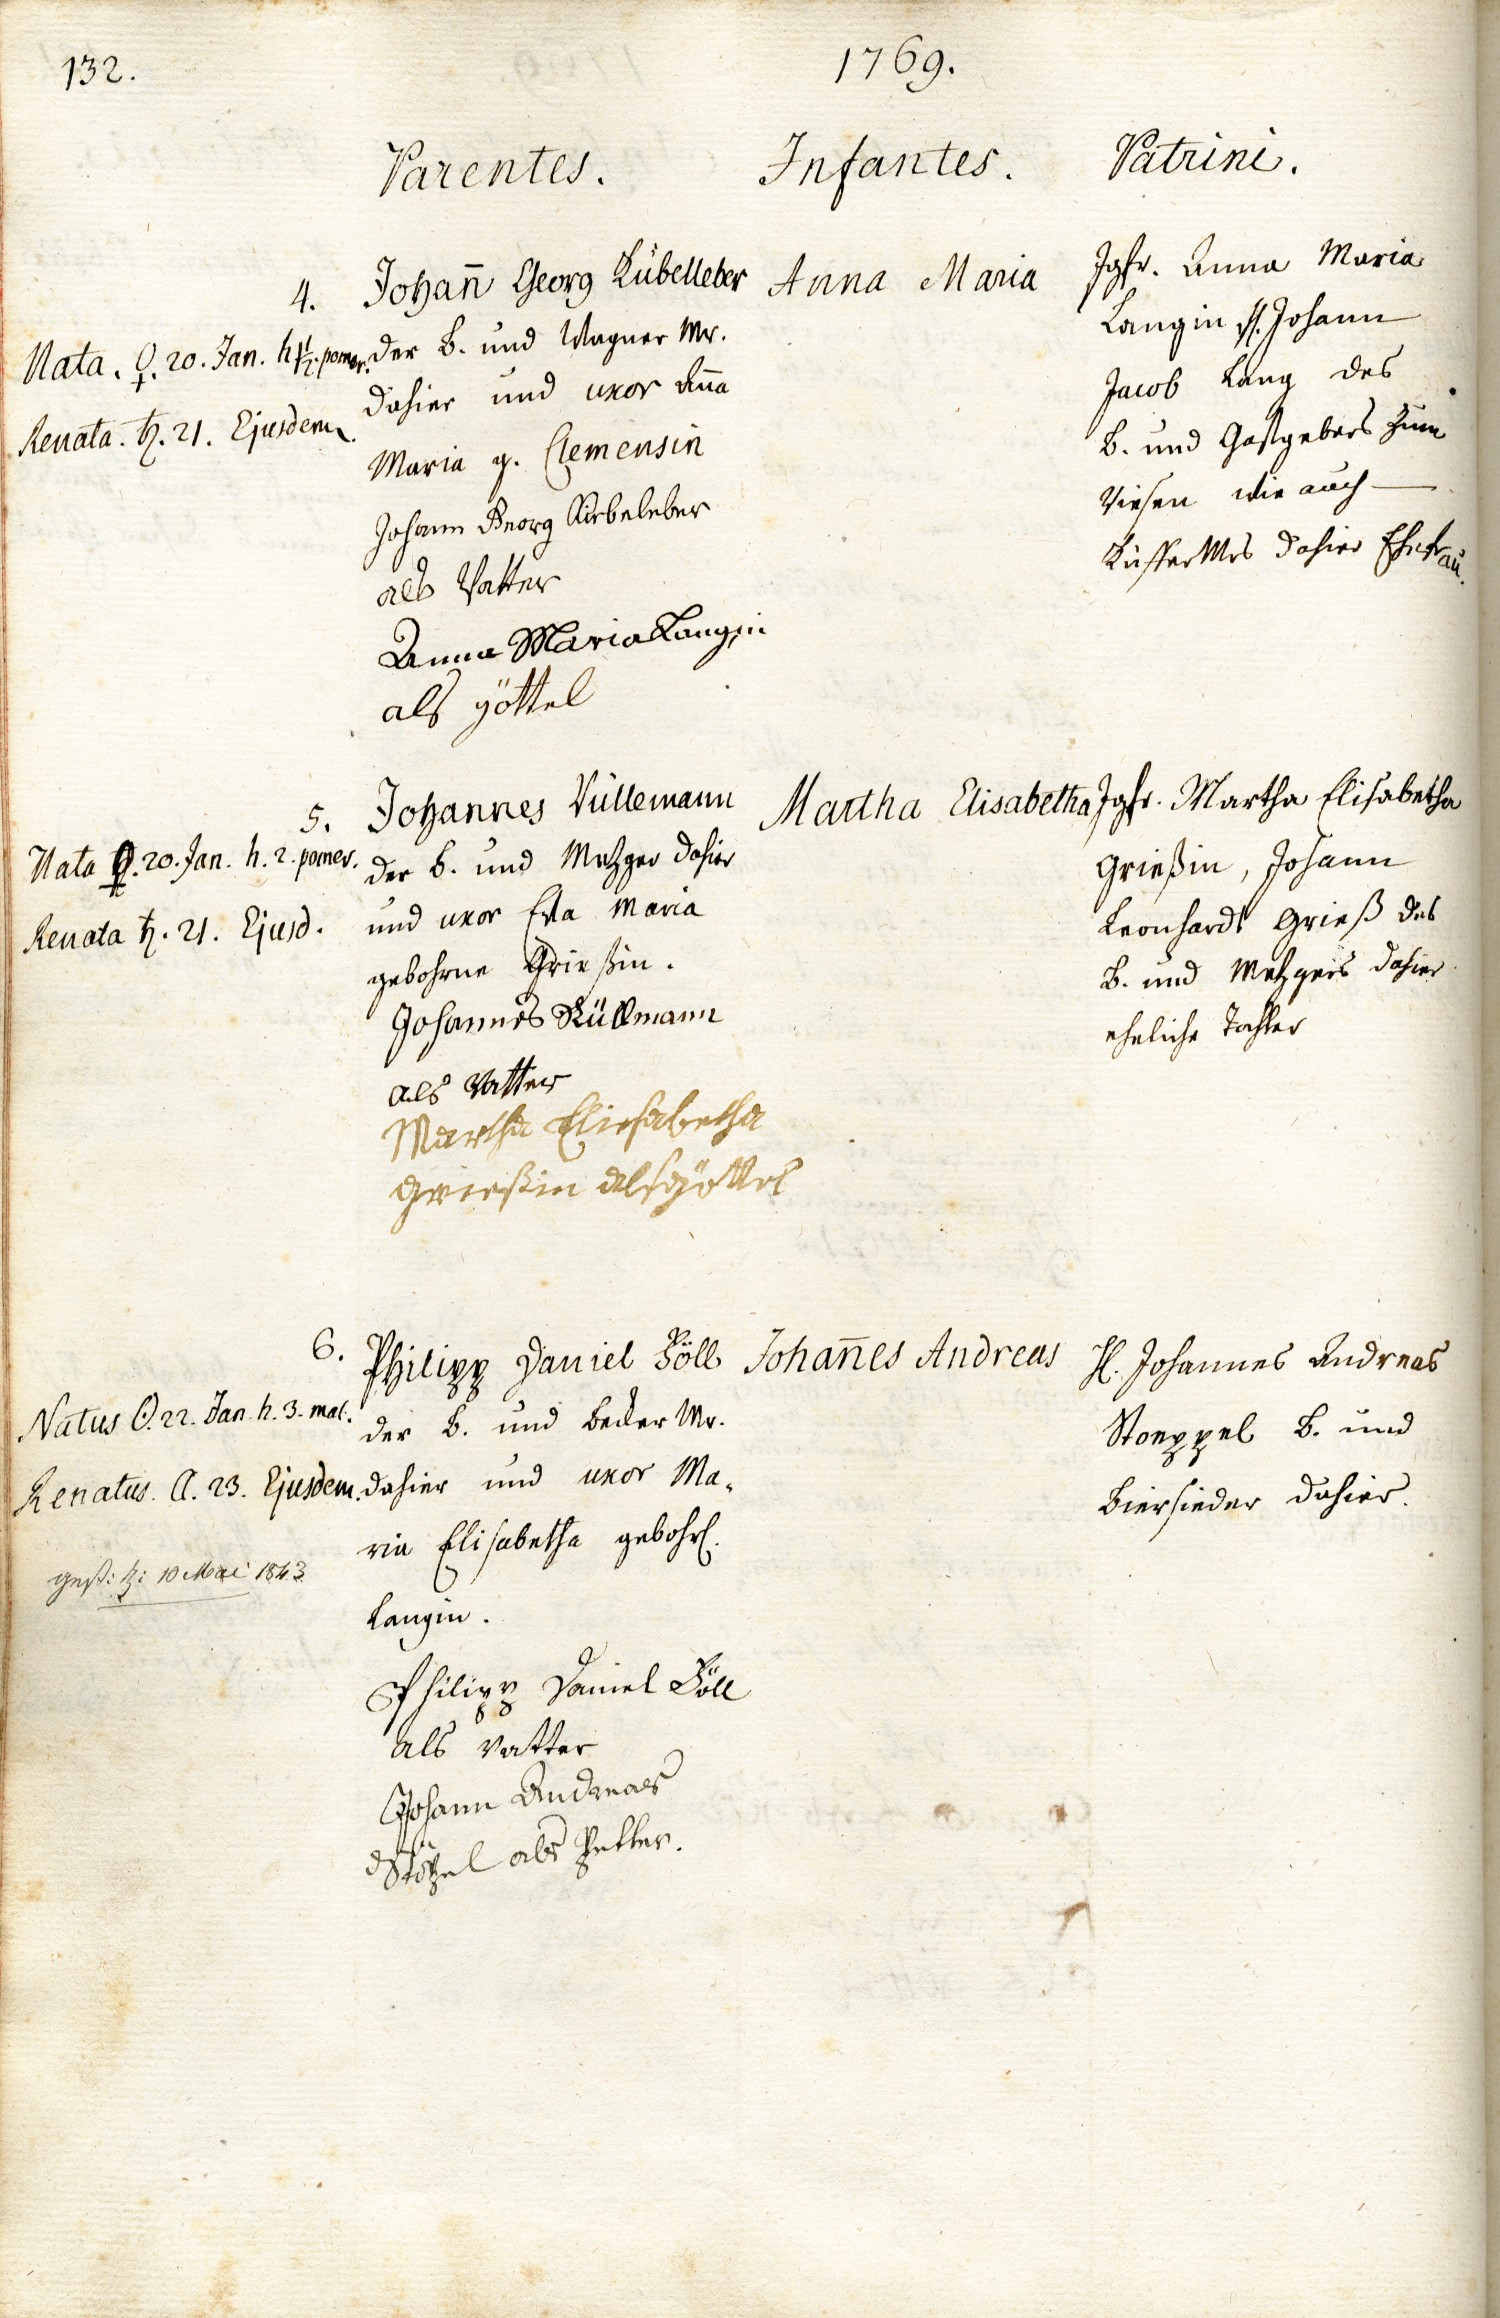 132.
1769.
Parentes. Infantes. Patrini.
4.
Nata. ♀. 20. Jan. h. 1½. pomer.
Renata. ♄. 21. Ejusdem.
Johan̄ Georg Kübelleber
der B. und Wagner Mr.
dahier und uxor An̄a
Maria g. Clemensin
Johann Georg Kirbeleber
als Vatter
Anna Maria Langin
als göttel
Anna Maria
Jgfr. Anna Maria
Langin, Johann
Jacob Lang des
B. und Gastgebers zum
Riesen wie auch
Küffer Mrs dahier Ehefrau.
5.
Nata ♀. 20. Jan. h. 2. pomer.
Renata ♄. 21. Ejusd.
Johannes Rüllemann
der B. und Metzger dahier
und uxor Eva Maria
gebohrne Grießin.
Johannes Rüllmann
als Vatter
Martha Eliesabetha
Grießin als göttel
Martha Elisabetha
Jgfr. Martha Elisabetha
Grießin, Johann
Leonhardt Grieß des
B. und Metzgers dahier
eheliche Tochter
6.
Natus ☉. 22. Jan. h. 3. mat.
Renatus. ☾. 23. Ejusdem.
gest: 10 Mai 1843
Philipp Daniel Böll
der B. und Becker Mr.
dahier und uxor Ma-
ria Elisabetha gebohrl.
Langin.
Philipp Daniel Böll
als Vatter
Johann Andreas
Stöpel als Petter.
Johan̄es Andreas
H. Johannes Andreas
Stoeppel B. und
Biersieder dahier.